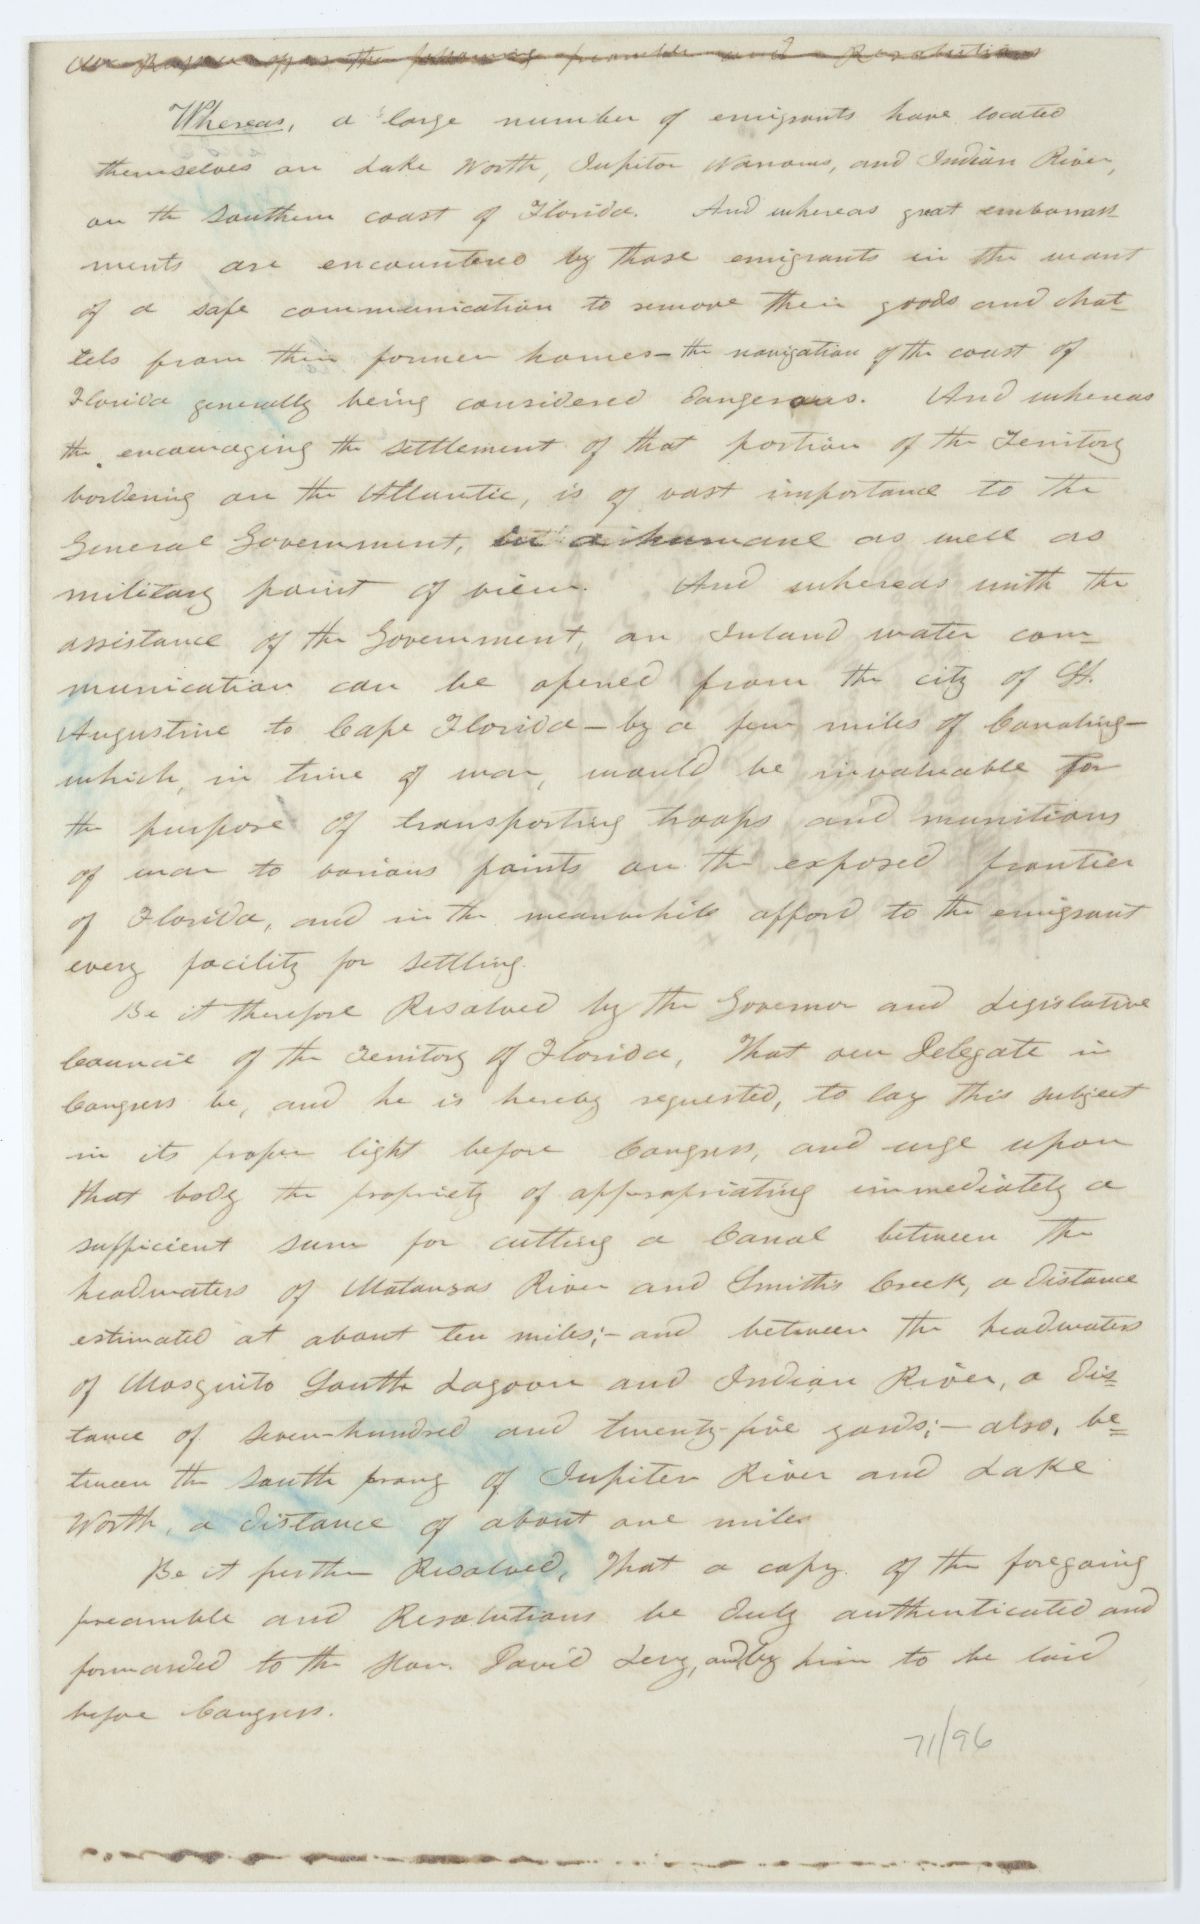 offers the following preamble and Resolutions
Whereas, a large number of emigrants have located
themselves on Lake Worth, Jupiter Narrows, and Indian River,
on the southern coast of Florida. And whereas great embarrass-
ments are encountered by those emigrants in the want
of a safe communication to remove their goods and chat-
tels from their former homes - the navigation of the coast of
Florida generally being considered dangerous. And whereas
the encouraging the settlement of that portion of the Territory
bordering on the Atlantic, is of vast importance to the
General Government, in a humane as well as
military point of view. And whereas with the
assistance of the Government, an Inland water com-
munication can be opened from the city of St.
Augustine to Cape Florida - by a few miles of Canaling -
which, in time of war, would be invaluable for
the purpose of transporting troops and munitions
of war to various points on the exposed frontier
of Florida, and in the meanwhile afford to the emigrant
every facility for settling.
Be it therefore Resolved by the Governor and Legislative
Council of the Territory of Florida, That our Delegate in
Congress be, and he is hereby requested, to lay this subject
in its proper light before Congress, and urge upon
that body the propriety of appropriating immediately a
sufficient sum for cutting a Canal between the
headwaters of Matanzas River and Smith's Creek, a distance
estimated at about ten miles; - and between the headwaters
of Mosquito South Lagoon and Indian River, a dis=
tance of seven-hundred and twenty-five yards; - also, be=
tween the south prong of Jupiter River and Lake
Worth, a distance of about one mile.
Be it further Resolved, That a copy of the foregoing
preamble and Resolutions be duly authenticated and
forwarded to the Hon. David Levy, and by him to be laid
before Congress.
71/96